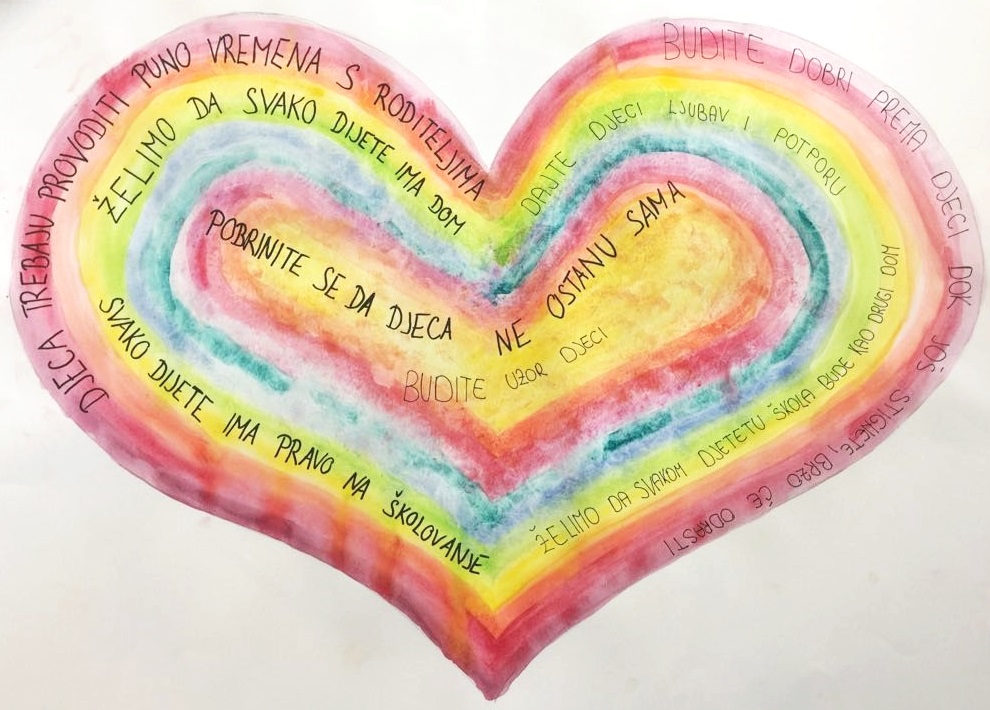 DJECA TREBAJU PROVODITI PUNO VREMENA S RODITELJIMA
BUDITE DOBRI PREMA DJECI DOK JOŠ STIGNETE, BRZO ĆE ODRASTI
ŽELIMO DA SVAKO DIJETE IMA DOM
DAJTE DJECI LJUBAV I POTPORU
SVAKO DIJETE IMA PRAVO NA ŠKOLOVANJE
ŽELIMO DA SVAKOM DJETETU ŠKOLA BUDE KAO DRUGI DOM
POBRINITE SE DA DJECA NE OSTANU SAMA
BUDITE UZOR DJECI